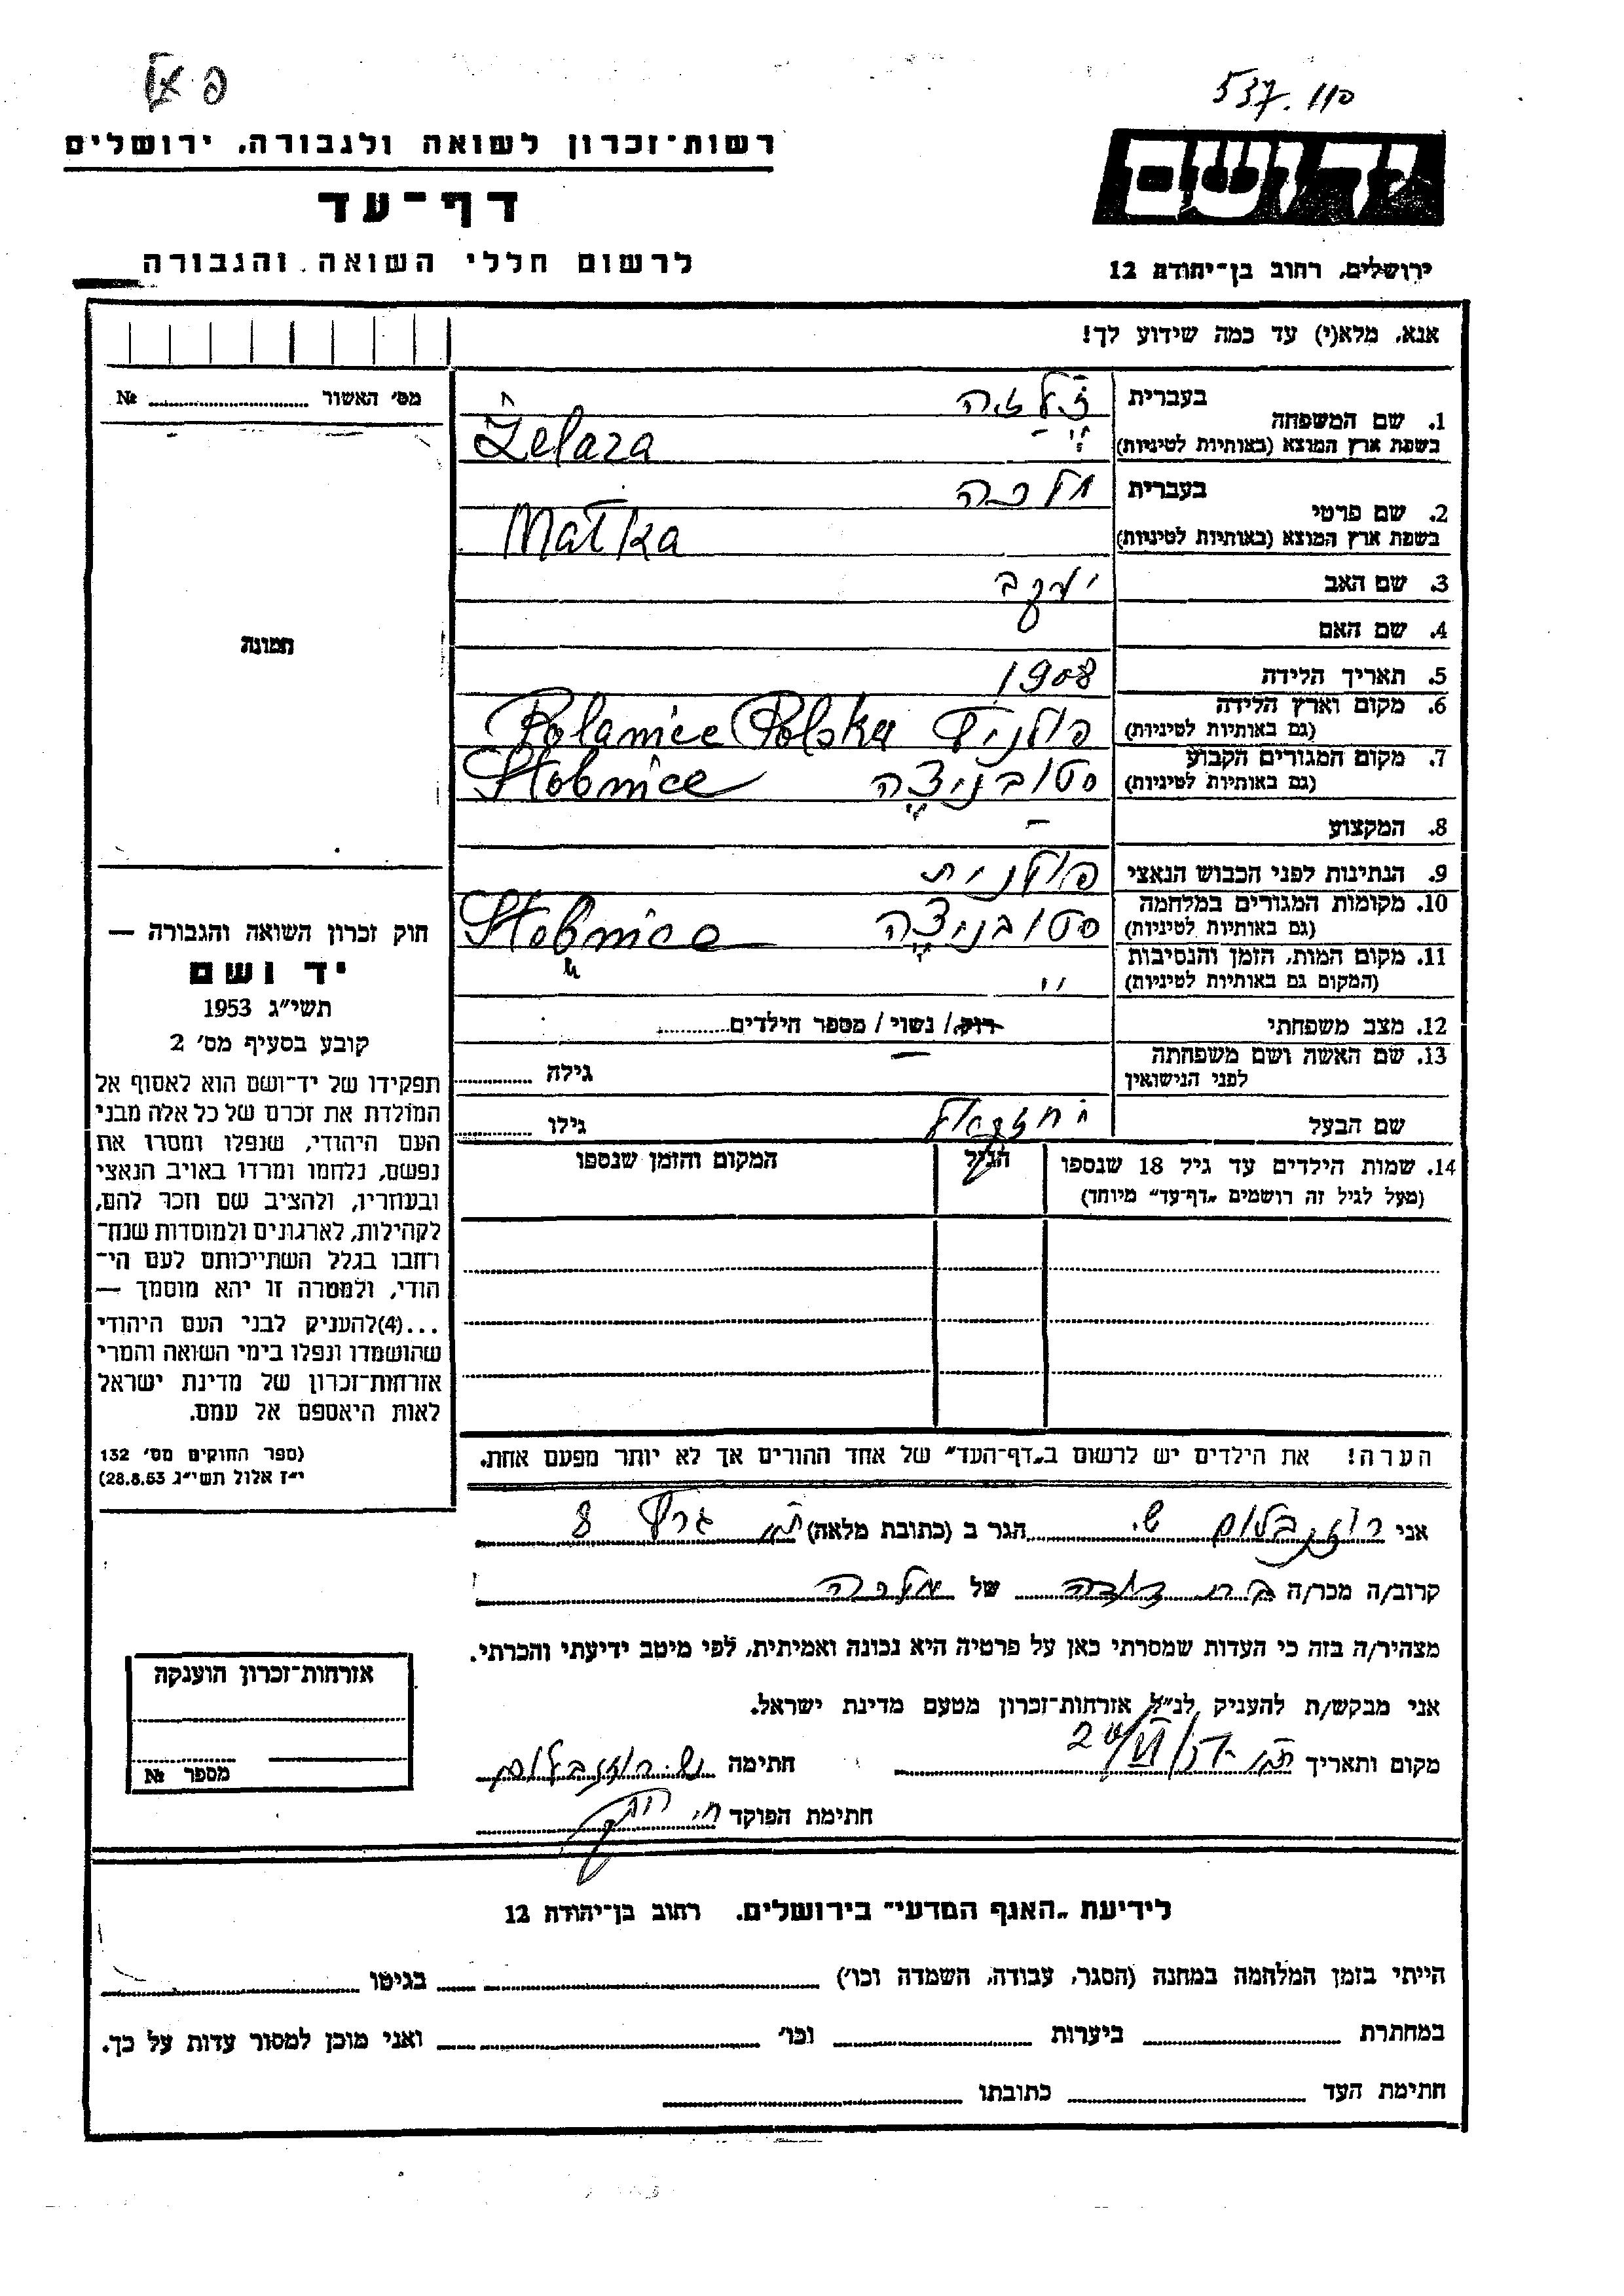 537.110
רשות־זכרון לשואה ולגבורה, ירושלים
דף־עד
לרשום חללי השואה והגבורה
יד ושם
ירושלים, רחוב בן־יהודה 12
אנא, מלא(י) עד כמה שידוע לך!
מס׳ האשור № 
1. שם המשפחה
בעברית
בשפת ארץ המוצא (באותיות לטיניות) Żelaza
2. שם פרטי
בעברית מלכה
בשפת ארץ המוצא (באותיות לטיניות) Malka
3. שם האב יעקב
4. שם האם
5. תאריך הלידה 1908
6. מקום וארץ הלידה
(גם באותיות לטיניות) Polanice Polska
7. מקום המגורים הקבוע
(גם באותיות לטיניות) סטובניצה Stobnice
8. המקצוע –
9. הנתינות לפני הכבוש הנאצי פולנית
10. מקומות המגורים במלחמה
(גם באותיות לטיניות) סטובניצה Stobnice
11. מקום המות, הזמן והנסיבות
(המקום גם באותיות לטיניות) "
12. מצב משפחתי רוק/ נשוי/ מספר הילדים
13. שם האשה ושם משפחתה
לפני הנישואין – גילה
שם הבעל גילו
14. שמות הילדים עד גיל 18 שנספו
(מעל לגיל זה רושמים „דף־עד” מיוחד)
הגיל
המקום והזמן שנספו
תמונה
חוק זכרון השואה והגבורה —
יד ושם
תשי״ג 1953
קובע בסעיף מס׳ 2
תפקידו של יד־ושם הוא לאסוף אל
המולדת את זכרם של כל אלה מבני
העם היהודי, שנפלו ומסרו את
נפשם, נלחמו ומרדו באויב הנאצי
ובעוזריו, ולהציב שם וזכר להם,
לקהילות, לארגונים ולמוסדות שנח־
רחבו בגלל השתייכותם לעם הי־
הודי, ולמטרה זו יהא מוסמך —
...(4)להעניק לבני העם היהודי
שהושמדו ונפלו בימי השואה והמרי
אזרחות־זכרון של מדינת ישראל
לאות היאספם אל עמם.
(ספר החוקים מס׳ 132
י״ז אלול תשי״ג 28.8.53)
הערה! את הילדים יש לרשום ב„דף־העד” של אחד ההורים אך לא יותר מפעם אחת.
אני רוזנבלום ש. הגר ב (כתובת מלאה) 8
קרוב/ה מכר/ה בת דודה של מלכה
מצהיר/ה בזה כי העדות שמסרתי כאן על פרטיה היא נכונה ואמיתית, לפי מיטב ידיעתי והכרתי.
אני מבקש/ת להעניק לנ״ל אזרחות־זכרון מטעם מדינת ישראל.
מקום ותאריך חתימה ש. רוזנבלום
חתימת הפוקד
אזרחות־זכרון הוענקה
מספר №
לידיעת „האגף המדעי” בירושלים. רחוב בן־יהודה 12
הייתי בזמן המלחמה במחנה (הסגר, עבודה, השמדה וכו׳) בגיטו
במחתרת ביערות וכו׳ ואני מוכן למסור עדות על כך.
חתימת העד כתובתו